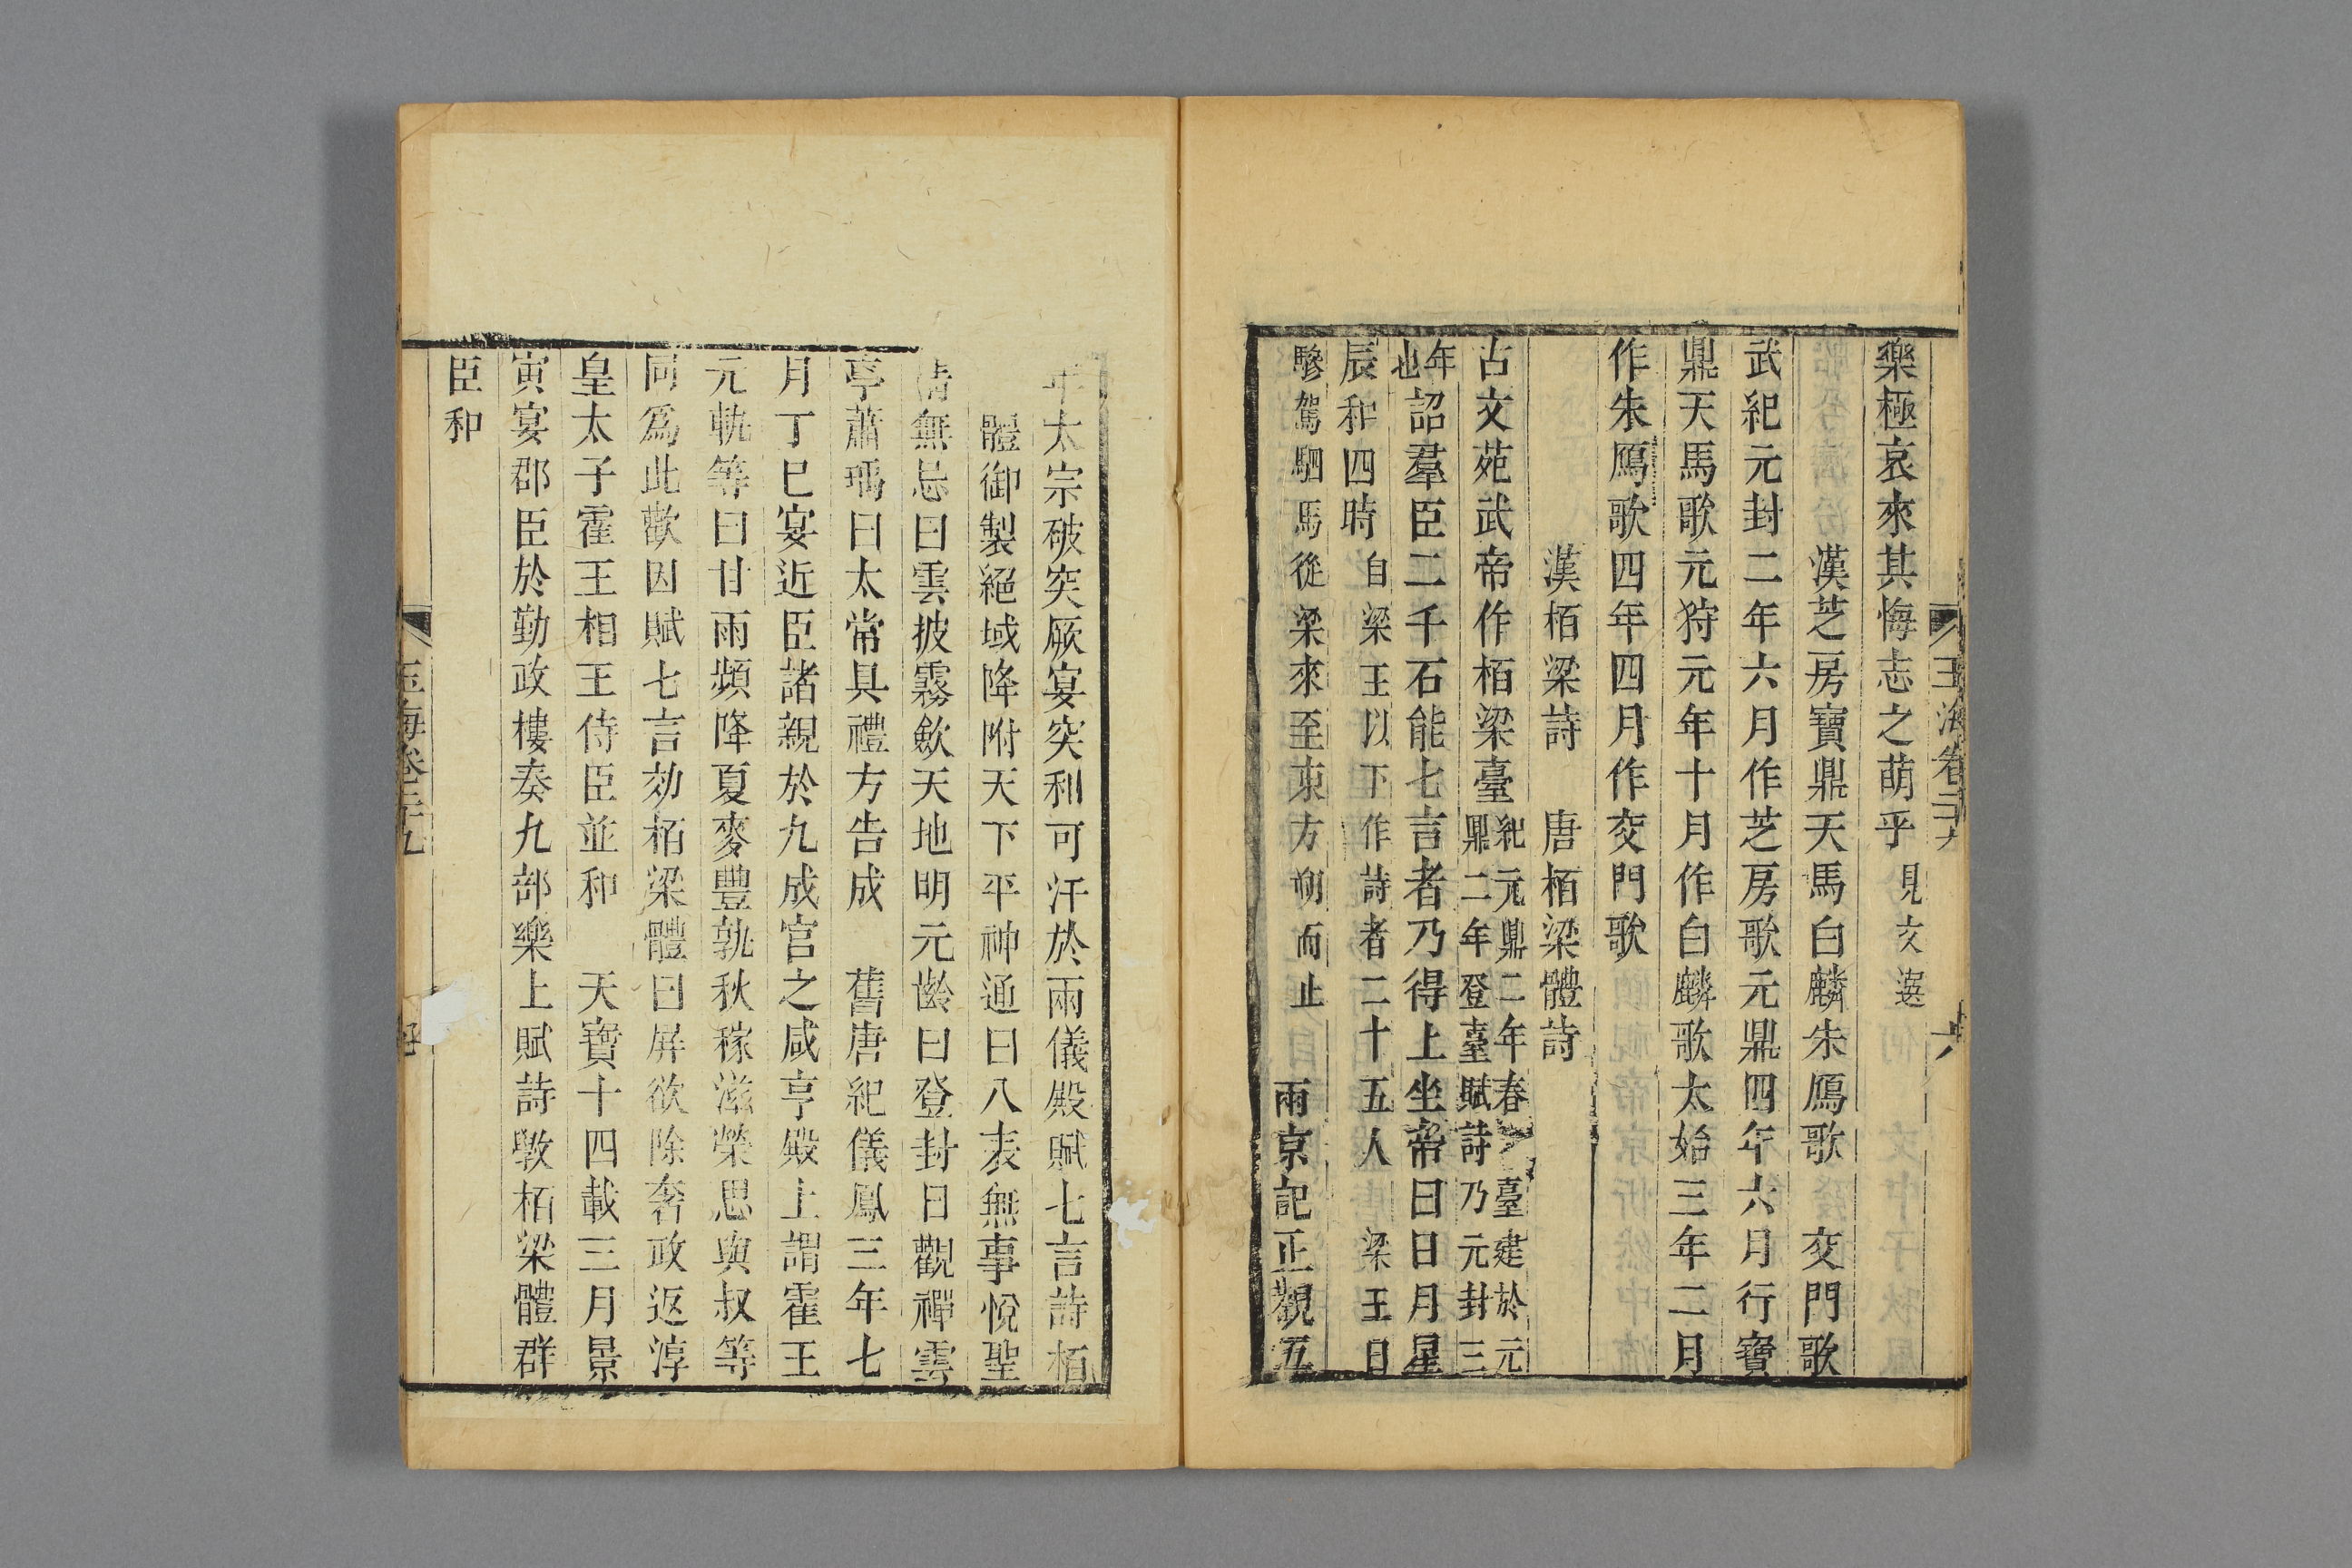 玉海卷二十九
六
樂極哀來其悔志之萌乎見文選
漢芝房寶鼎天馬白麟朱鴈歌　交門歌
武紀元封二年六月作芝房歌元鼎四年六月行寶
鼎天馬歌元狩元年十月作白麟歌太始三年二月
作朱鴈歌四年四月作交門歌
漢栢梁詩　唐栢梁體詩
古文苑武帝作栢梁臺紀元鼎二年春臺建於元
鼎二年登臺賦詩乃元封三
年
也詔羣臣二千石能七言者乃得上坐帝曰日月星
辰和四時自梁王以下作詩者二十五人　梁王曰
驂駕駟馬從梁來至東方朔而止　兩京記正觀五
年太宗破突厥宴突利可汗於兩儀殿賦七言詩栢
體御製絕域降附天下平神通曰八表無事悅聖
情無忌曰雲披霧歛天地明元齡曰登封日觀禪雲
亭蕭瑀曰太常具禮方告成　舊唐紀儀鳳三年七
月丁巳宴近臣諸親於九成宮之咸亨殿上謂霍王
元軌等曰甘雨頻降夏麥豐孰秋稼滋榮思與叔等
同爲此歡因賦七言効栢梁體曰屏欲除奢政返淳
皇太子霍王相王侍臣並和　天寶十四載三月景
寅宴郡臣於勤政樓奏九部樂上賦詩斆栢梁體群
臣和
玉海卷二十九